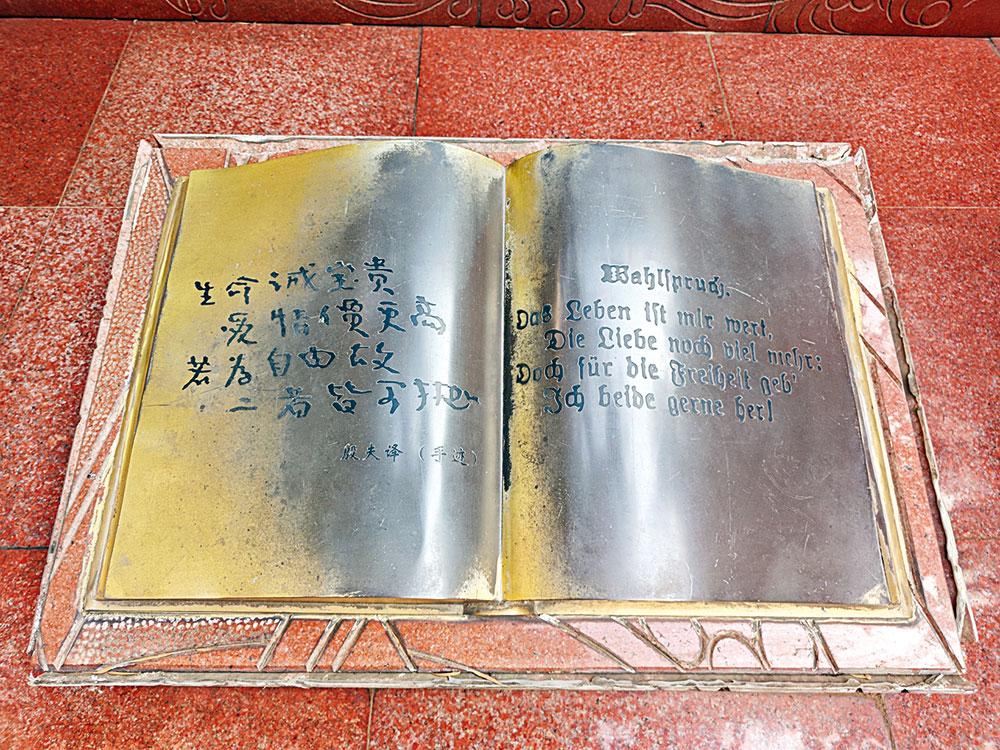 生命诚宝贵
爱情價更高
若为自由故
二者皆可抛
殷夫译（手迹）
Wahlspruch.
Das Leben ist mir wert,
Die Liebe noch viel mehr:
Doch für die Freiheit geb'
Ich beide gerne her!